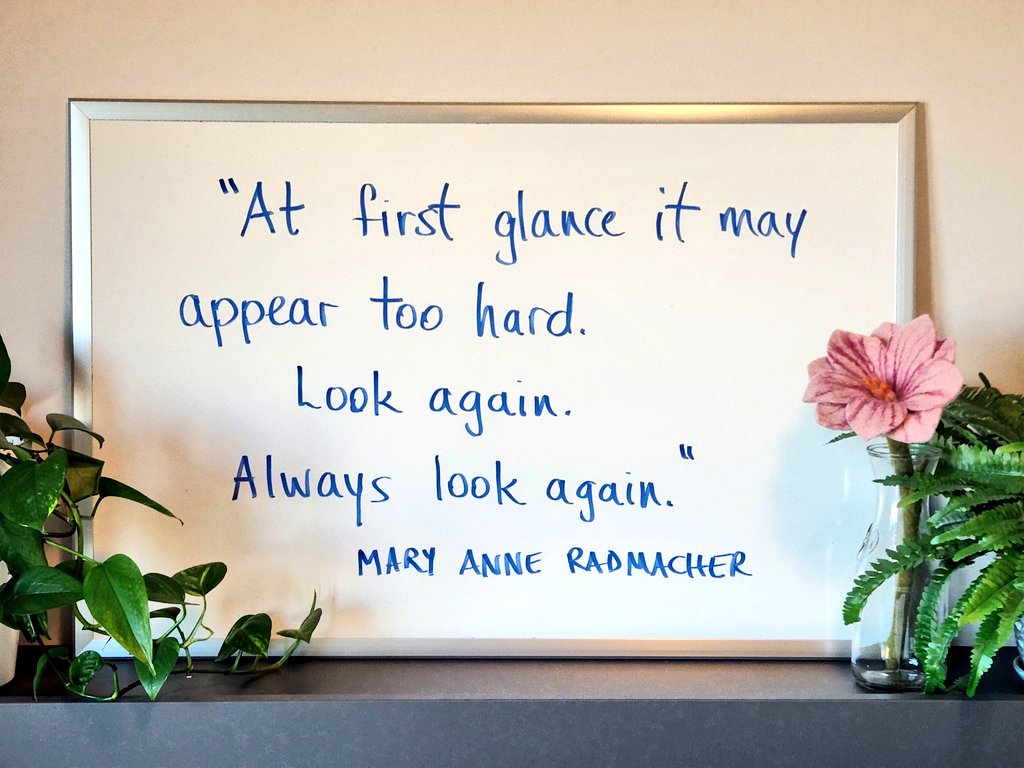 "At first glance it may
appear too hard.
Look again.
Always look again."
MARY ANNE RADMACHER